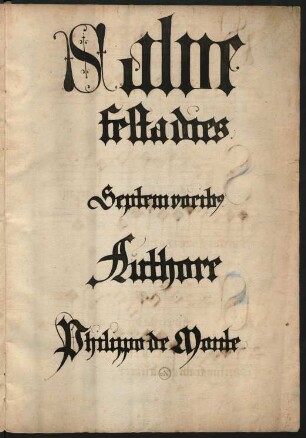 Salue
festa dies
Septem vocibꝰ
Authore
Philippo de Monte